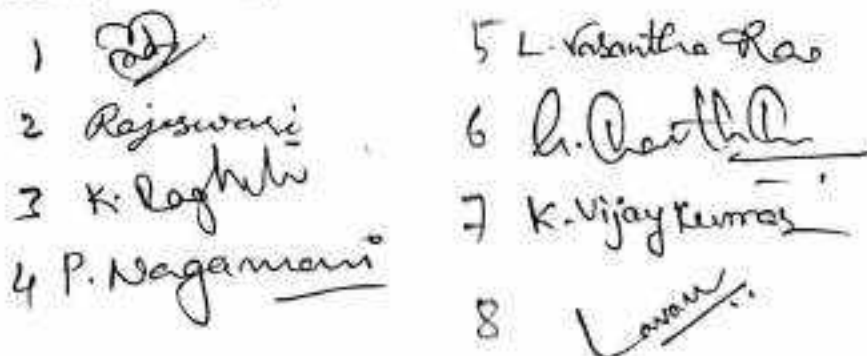 1
2 Rajeswari
3 K. Raghu
4 P. Nagamani
5 L. Vasantha Rao
6
7 K. Vijay Kumar
8 Lavan